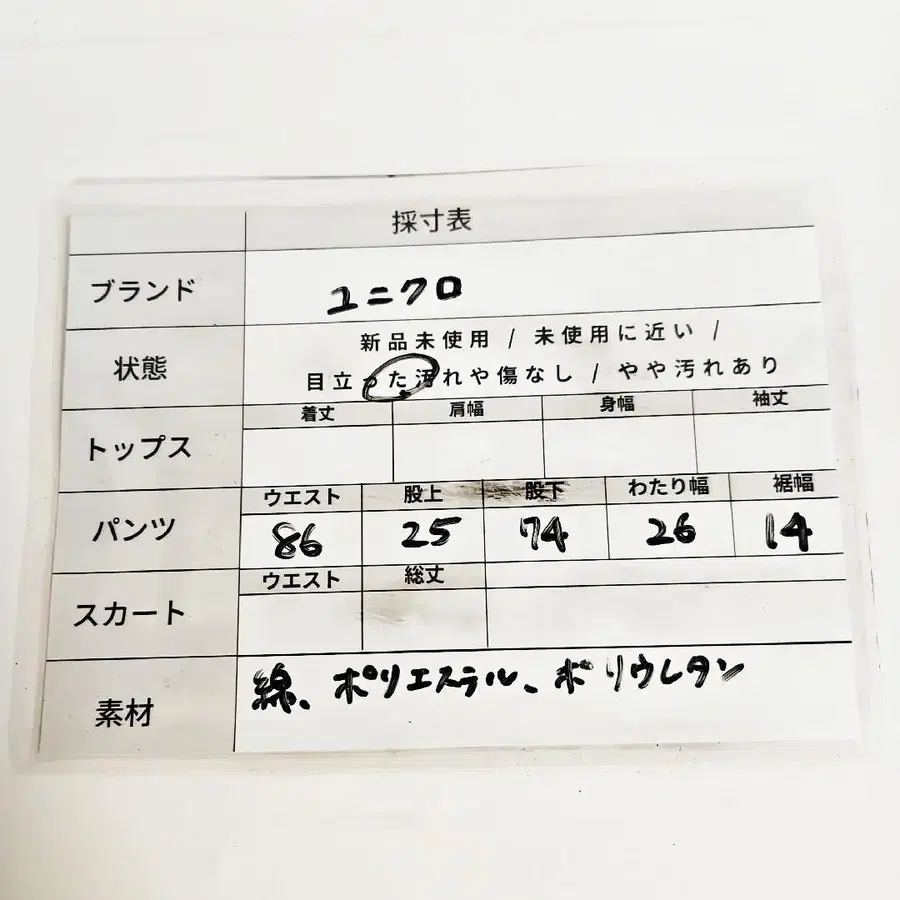 採寸表
ブランド ユニクロ
新品未使用 / 未使用に近い /
状態
目立った汚れや傷なし / やや汚れあり
着丈 肩幅 身幅 袖丈
トップス
ウエスト 股上 股下 わたり幅 裾幅
パンツ 86 25 74 26 14
ウエスト 総丈
スカート
素材 綿、ポリエステル、ポリウレタン